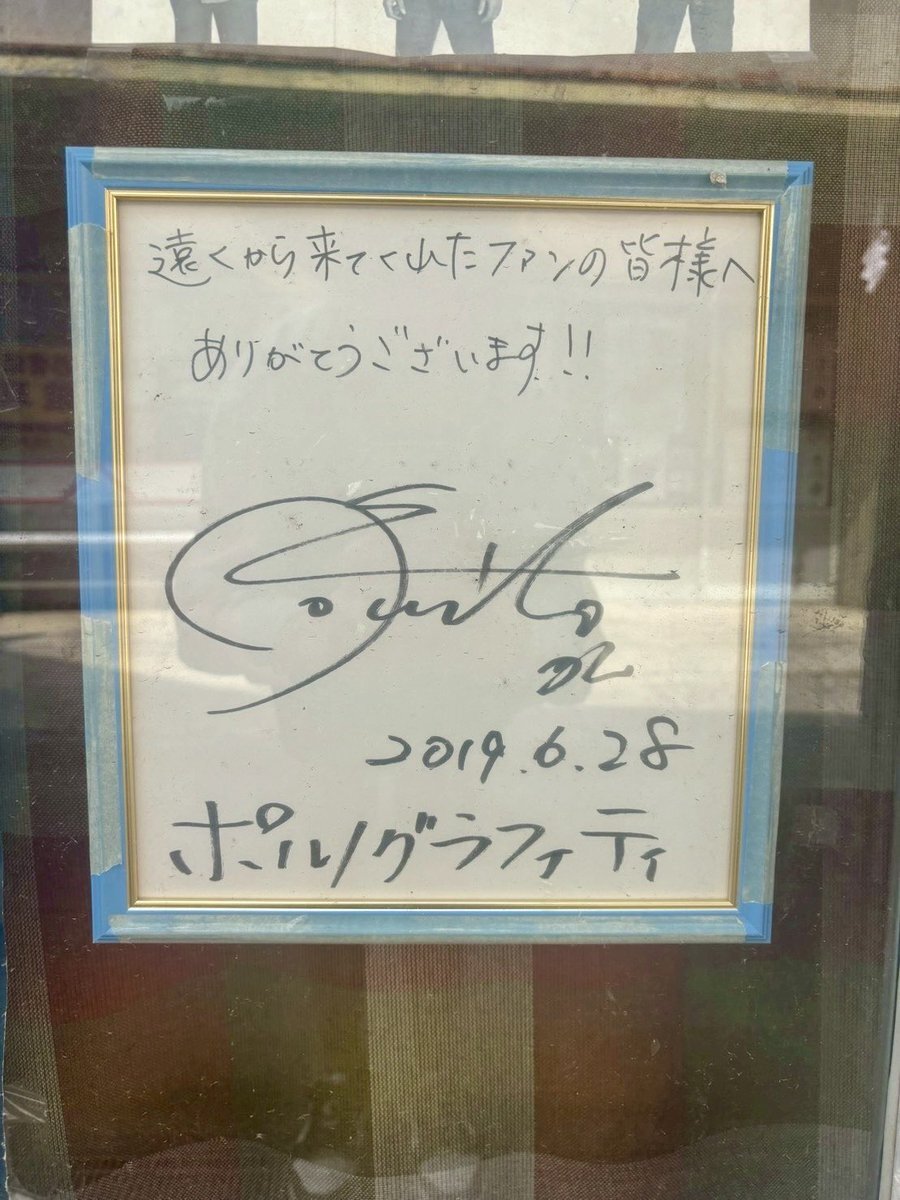 遠くから来てくれたファンの皆様へ
ありがとうございます!!
2019.6.28
ポルノグラフィティ